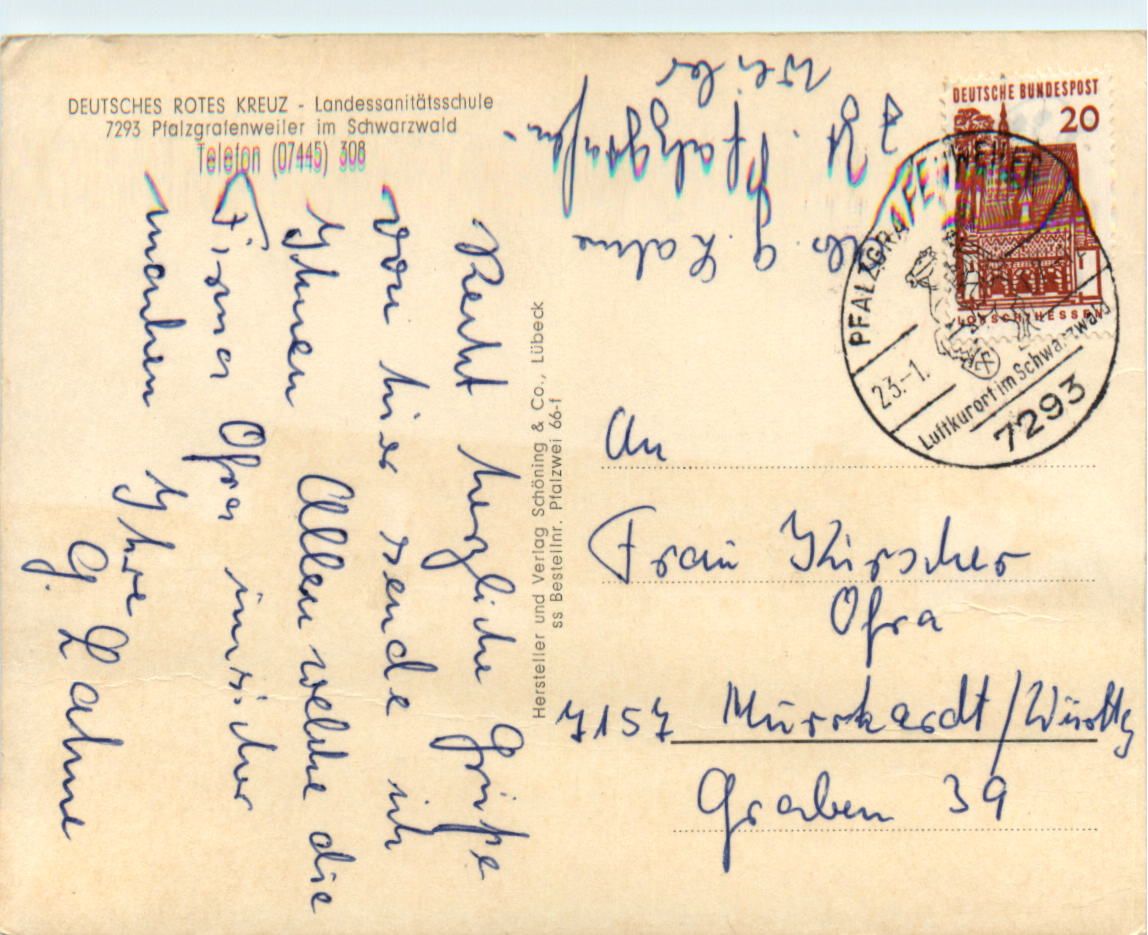 DEUTSCHES ROTES KREUZ - Landessanitätsschule
7293 Pfalzgrafenweiler im Schwarzwald
Telefon (07445) 308
Recht herzliche Grüße
von hier sende ich
Ihnen Allen welche die
Firma Ofra unsicher
machen Ihre
G. Lahme
Hersteller und Verlag Schöning & Co., Lübeck
ss Bestellnr. Pfalzwei 66-f
Abs. G. Lahme
z Zt. Pfalzgrafen-
weiler
DEUTSCHE BUNDESPOST
20
LORSCH/HESSEN
PFALZGRAFENWEILER
23.-1.
Luftkurort im Schwarzwald
7293
An
Frau Kürscher
Ofra
7157 Murrhardt/Württg
Graben 39